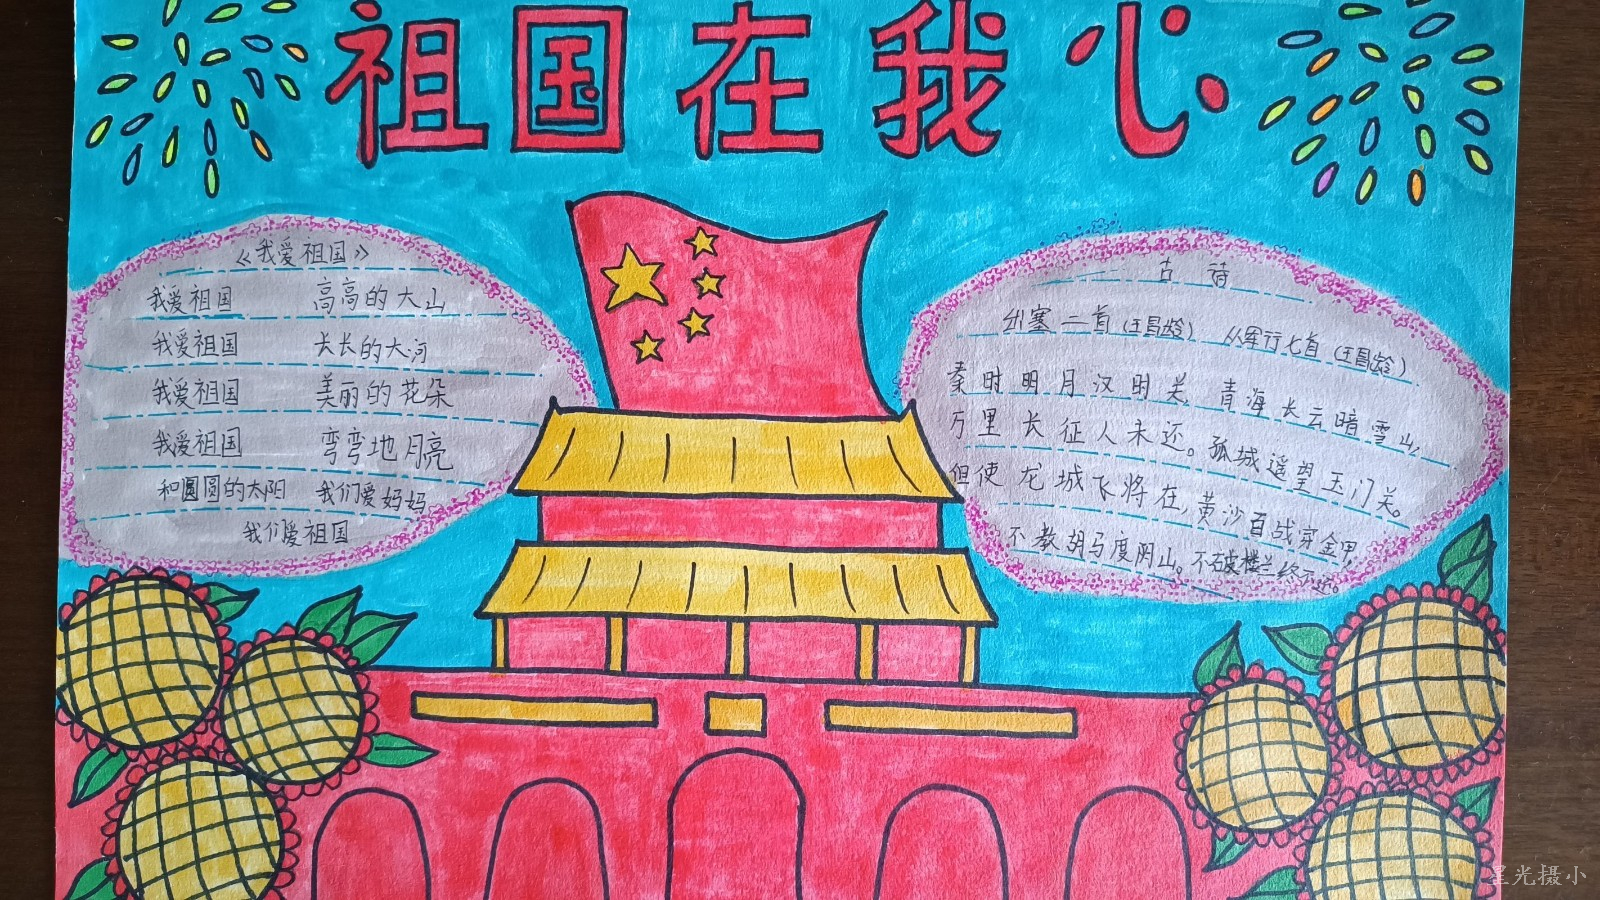 祖国在我心
《我爱祖国》
我爱祖国 高高的大山
我爱祖国 长长的大河
我爱祖国 美丽的花朵
我爱祖国 弯弯地月亮
和圆圆的太阳 我们爱妈妈
我们爱祖国
古诗
出塞二首(王昌龄) 从军行七首(王昌龄)
秦时明月汉时关, 青海长云暗雪山,
万里长征人未还。孤城遥望玉门关。
但使龙城飞将在,黄沙百战穿金甲,
不教胡马度阴山。不破楼兰终不还。
星光摄小